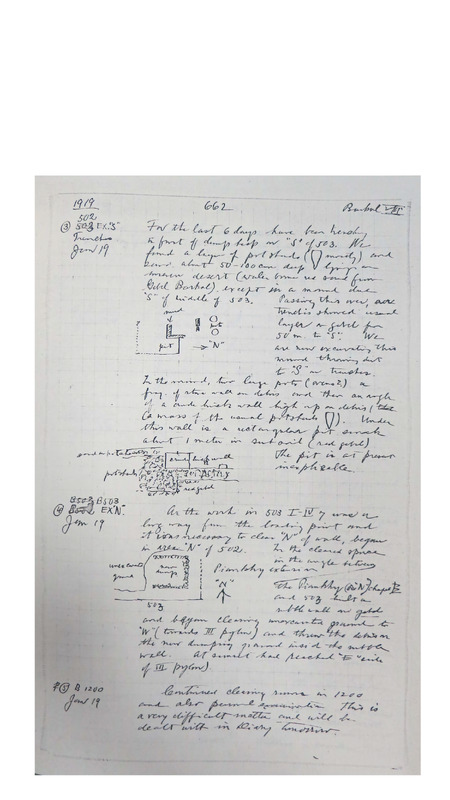 1919 662 Barkal VII
502
③ 503 EX."S"
Trenches
Jan 19
For the last 6 days have been
a front of dump heap on "S" of 503. We
found a layer of potsherds ( mostly) and
about 50-100 cm deep lying on
desert (water borne sand from
Gebel Barkal), except in a mound due
"S" of middle of 503. Passing this over, our
trenches showed usual
layer on gebel for
50 m. to "S". We
are now excavating this
mound throwing dirt
to "S" in trenches.
mud
pot
pit
→ "N"
In the mound, two large pots (ovens?) a
frag. of stone wall on debris and then an angle
of a crude brick wall high up on debris (
a mass of the usual potsherds ). Under
this wall is a rectangular pit sunk
about 1 meter in subsoil (red gebel)
The pit is at present
inexplicable.
crude brick wall
potsherds
red gebel
B503 B503
④ EX"N"
Jan 19
As the work in 503 I-IV was a
long way from the loading point and
it was necessary to clear "N" of wall, began
in area "N" of 502. In the cleared space
in the angle between
Piankhy extension
The Piankhy chapel
and 503 built a
rubble wall on gebel
ground
new
dump
503
"N"
and began clearing unexcavated ground to
"W" (towards III pylon) and threw the debris on
the new dumping ground inside the rubble
wall. At sunset had reached "E" side
of III pylon).
⑤ B 1200
Jan 19
Continued clearing rooms in 1200
and also personal examination. This is
a very difficult matter and will be
dealt with in Diary tomorrow.